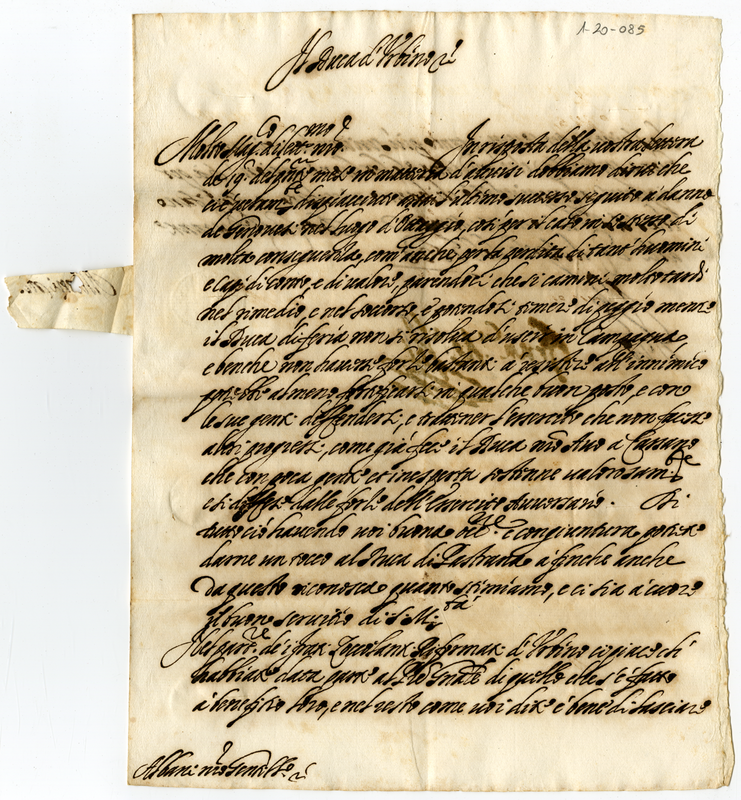 1-20-085
Il Duca d'Urbino &
Molto Mag.co dilett.mo n̄ro. In risposta della vostra lettera
de 19. del pn̄te mese in materia d'avvisi dobbiamo dirvi che
ci è dispiacciuto l'ultimo successo seguito a danno
de nel luogo d' così per il caso in se stesso di
molta conseguenza, com'anche per la perdita di tant'huomini
e capi di conto, e di valore, parendoci che si camini molto tardi
nel rimedio, e nel soccorso, e potendosi temere di peggio mentre
il Duca di feria non si risolva d'uscire in Campagna,
e benche non havesse forze bastanti a resistere all'inimico
potrebbe almeno fortificarsi in qualche buon posto, e con
le sue genti deffendersi, e trattener l'essercito che non facesse
altri progressi, come già fece il Duca n̄ro Avo a Cassano
che con poca gente et inesperta sostenne valorosam.te
e si diffese dalle forze dell'Esercito Avversario. Di
tutto ciò havendo voi buona occ.ne e congiuntura potrete
darne un tocco al Duca di Pastrana a finche anche
da questo riconosca quanto stimiamo, e ci sia a cuore
il buon servitio di S. M.tà
Nel part.re de i frati Zoccolanti Reformati d'Urbino ci piace ch'
habbiate data parte al P.re Gn̄ale di quello che s'è fatto
a benefitio loro, e nel resto come voi dite è bene di lasciare
Albani n̄ro Gentilh.o &